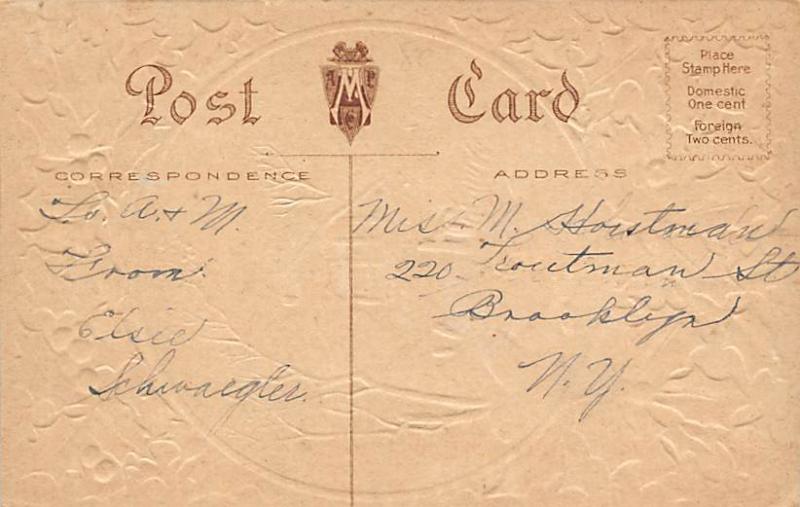 Post Card
Place
Stamp Here
Domestic
One cent
Foreign
Two cents.
CORRESPONDENCE
ADDRESS
To. A. + M.
From
Elsie
Schwaegler.
Miss M. Horstman
220 Troutman St
Brooklyn
N. Y.